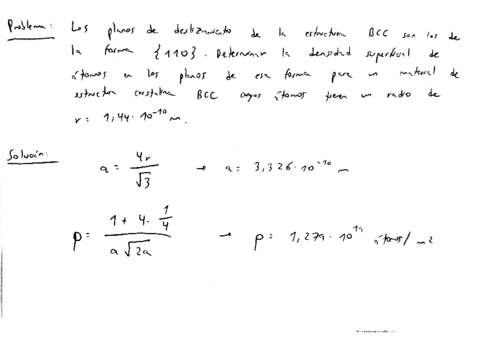 Problema: Los planos de deslizamiento de la estructura BCC son los de
la forma {110}. Determinar la densidad superficial de
átomos en los planos de esa forma para un material de
estructura cristalina BCC cuyos átomos tienen un radio de
r = 1,44·10⁻¹⁰ m.
Solución:
a = 4r/√3 → a = 3,326·10⁻¹⁰ m
ρ = (1 + 4·1/4)/(a√2a) → ρ = 1,279·10¹⁹ átomos/m2